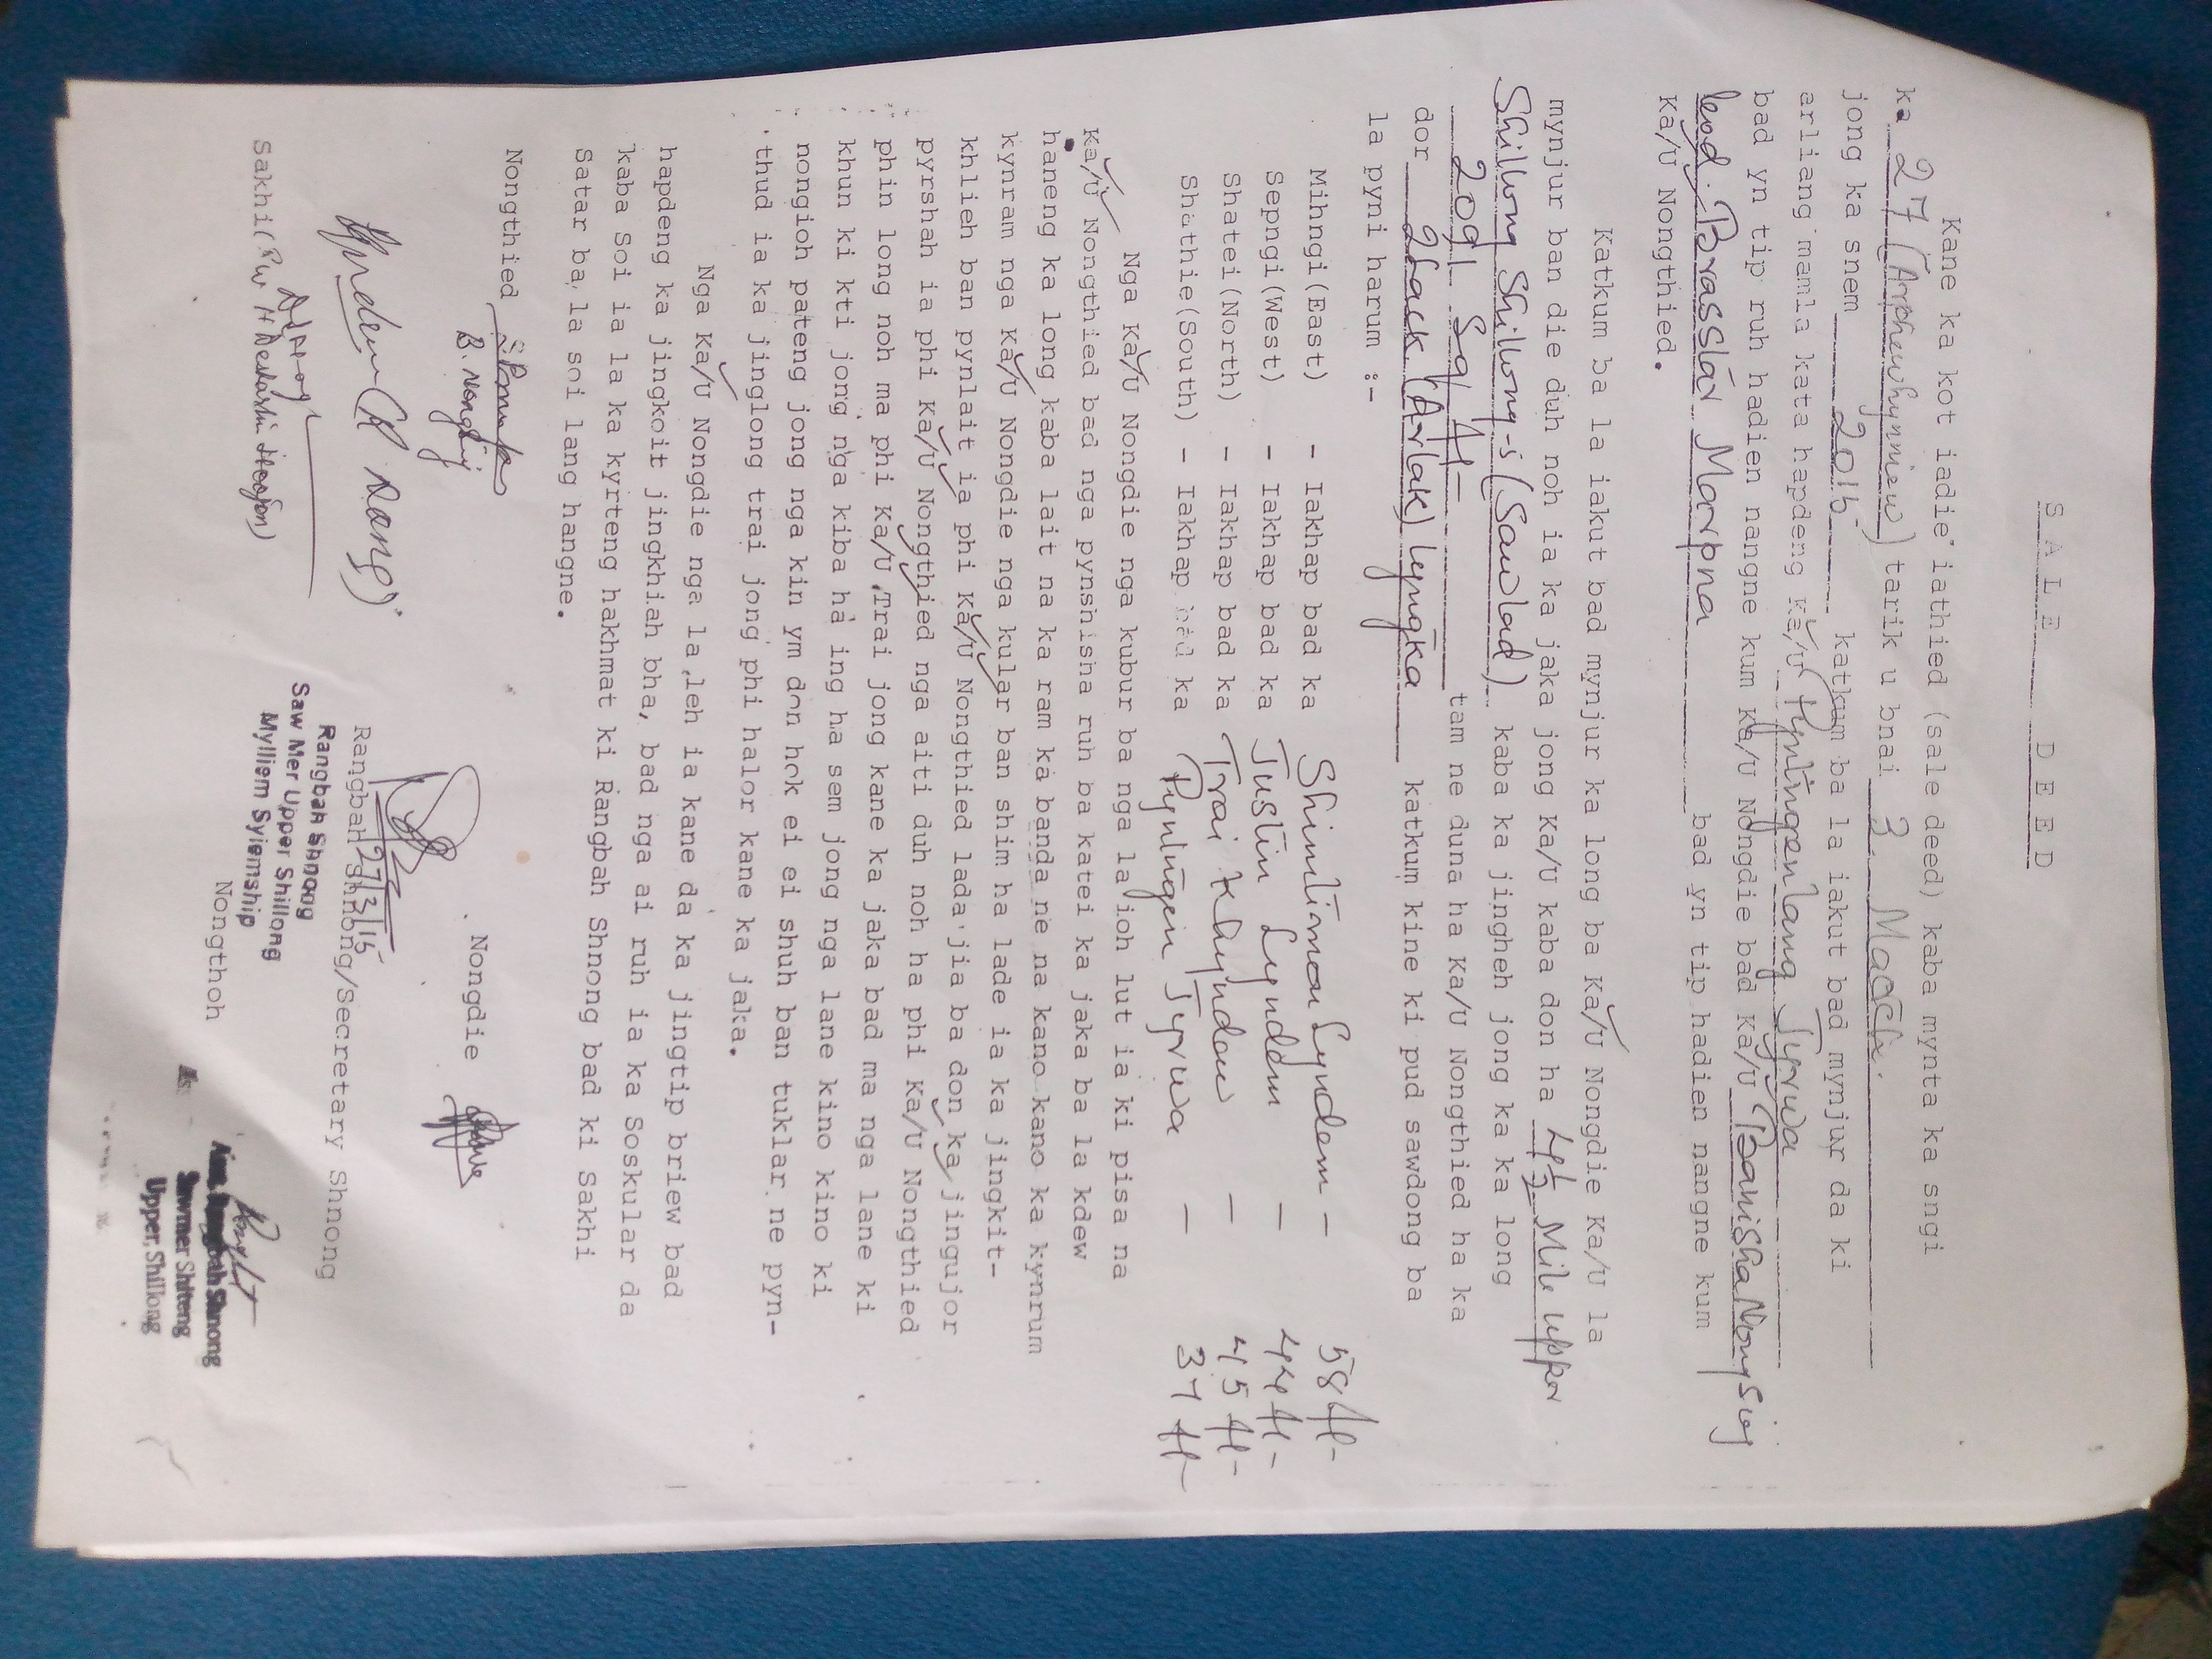 SALE DEED
Kane ka kot iadie iathied (sale deed) kaba mynta ka sngi
ka 27 (Arphewhynniew) tarik u bnai 3 March.
jong ka snem 2015 katkum ba la iakut bad mynjur da ki
arliang mamla kata hapdeng Ka/U Pyntngenlang Tyrwa
bad yn tip ruh hadien nangne kum Ka/U Nongdie bad Ka/U Banisha Nongsiej
Brasslar Marpna bad yn tip hadien nangne kum
Ka/U Nongthied.
Katkum ba la iakut bad mynjur ka long ba Ka/U Nongdie Ka/U la
mynjur ban die duh noh ia ka jaka jong Ka/U kaba don ha 4½ Mile Upper
Shillong Shillong-5 (Sawlad) kaba ka jingheh jong ka ka long
2091 Sq ft- tam ne duna ha Ka/U Nongthied ha ka
dor 2 lack (Arlak) lyngka katkum kine ki pud sawdong ba
la pyni harum :-
Mihngi(East) - Iakhap bad ka Shimtimon Lyndem - 58 ft-
Sepngi(West) - Iakhap bad ka Justin Lyndem - 44 ft-
Shatei(North) - Iakhap bad ka Trai Khyndew - 45 ft-
Shathie(South) - Iakhap bad ka Pyntngen Tyrwa - 37 ft-
Nga Ka/U Nongdie nga kubur ba nga la ioh lut ia ki pisa na
Ka/U Nongthied bad nga pynshisha ruh ba katei ka jaka ba la kdew
haneng ka long kaba lait na ka ram ka banda ne na kano kano ka kynrum
kynram nga Ka/U Nongdie nga kular ban shim ha lade ia ka jingkit-
khlieh ban pynlait ia phi Ka/U Nongthied lada jia ba don ka jingujor
pyrshah ia phi Ka/U Nongthied nga aiti duh noh ha phi Ka/U Nongthied
phin long noh ma phi Ka/U Trai jong kane ka jaka bad ma nga lane ki
khun ki kti jong nga kiba ha ing ha sem jong nga lane kino kino ki
nongioh pateng jong nga kin ym don hok ei ei shuh ban tuklar ne pyn-
thud ia ka jinglong trai jong phi halor kane ka jaka.
Nga Ka/U Nongdie nga la leh ia kane da ka jingtip briew bad
hapdeng ka jingkoit jingkhiah bha, bad nga ai ruh ia ka Soskular da
kaba Soi ia la ka kyrteng hakhmat ki Rangbah Shnong bad ki Sakhi
Satar ba la soi lang hangne.
Nongthied
B. Nongsiej
Nongdie
Rangbah Shnong/Secretary Shnong
27/3/15
Rangbah Shnong
Saw Mer Upper Shillong
Mylliem Syiemship
Sakhi(
Nongthoh
Rangbah Shnong
Sawmer Shiteng
Upper, Shillong